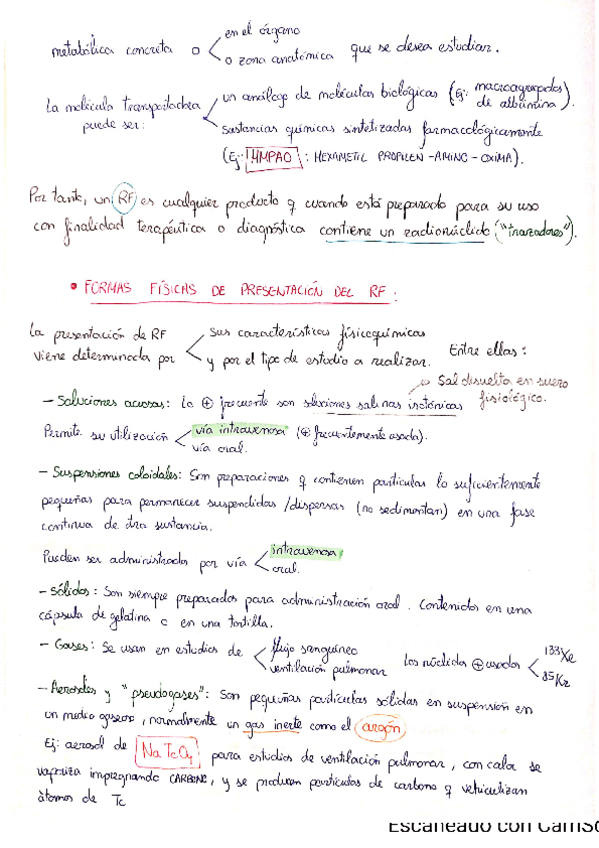 en el órgano
metabólica concreta o o zona anatómica que se desea estudiar.
un análogo de moléculas biológicas (Ej: macroagregados de albúmina).
La molécula transportadora puede ser:
sustancias químicas sintetizadas farmacológicamente
(Ej: HMPAO : HEXAMETIL PROPILEN-AMINO-OXIMA).
Por tanto, un RF es cualquier producto q cuando está preparado para su uso
con finalidad terapéutica o diagnóstica contiene un radionúclido ("trazadores").
• FORMAS FÍSICAS DE PRESENTACIÓN DEL RF:
La presentación de RF sus características fisicoquímicas
viene determinada por y por el tipo de estudio a realizar. Entre ellas:
Sal disuelta en suero fisiológico.
- Soluciones acuosas: la ⊕ frecuente son soluciones salinas isotónicas
Permite su utilización vía intravenosa (⊕ frecuentemente usada).
vía oral.
- Suspensiones coloidales: Son preparaciones q contienen partículas lo suficientemente
pequeñas para permanecer suspendidas/dispersas (no sedimentan) en una fase
continua de otra sustancia.
Pueden ser administrados por vía intravenosa
oral.
- Sólidos: Son siempre preparados para administración oral. Contenidos en una
cápsula de gelatina o en una tortilla.
- Gases: Se usan en estudios de flujo sanguíneo
ventilación pulmonar Los núclidos ⊕ usados 133Xe
85Kr
- Aerosoles y "pseudogases": Son pequeñas partículas sólidas en suspensión en
un medio gaseoso, normalmente un gas inerte como el argón
Ej: aerosol de NaTcO4 para estudios de ventilación pulmonar, con calor se
vaporiza impregnando CARBONO, y se producen partículas de carbono q vehiculizan
átomos de Tc
Escaneado con CamSc